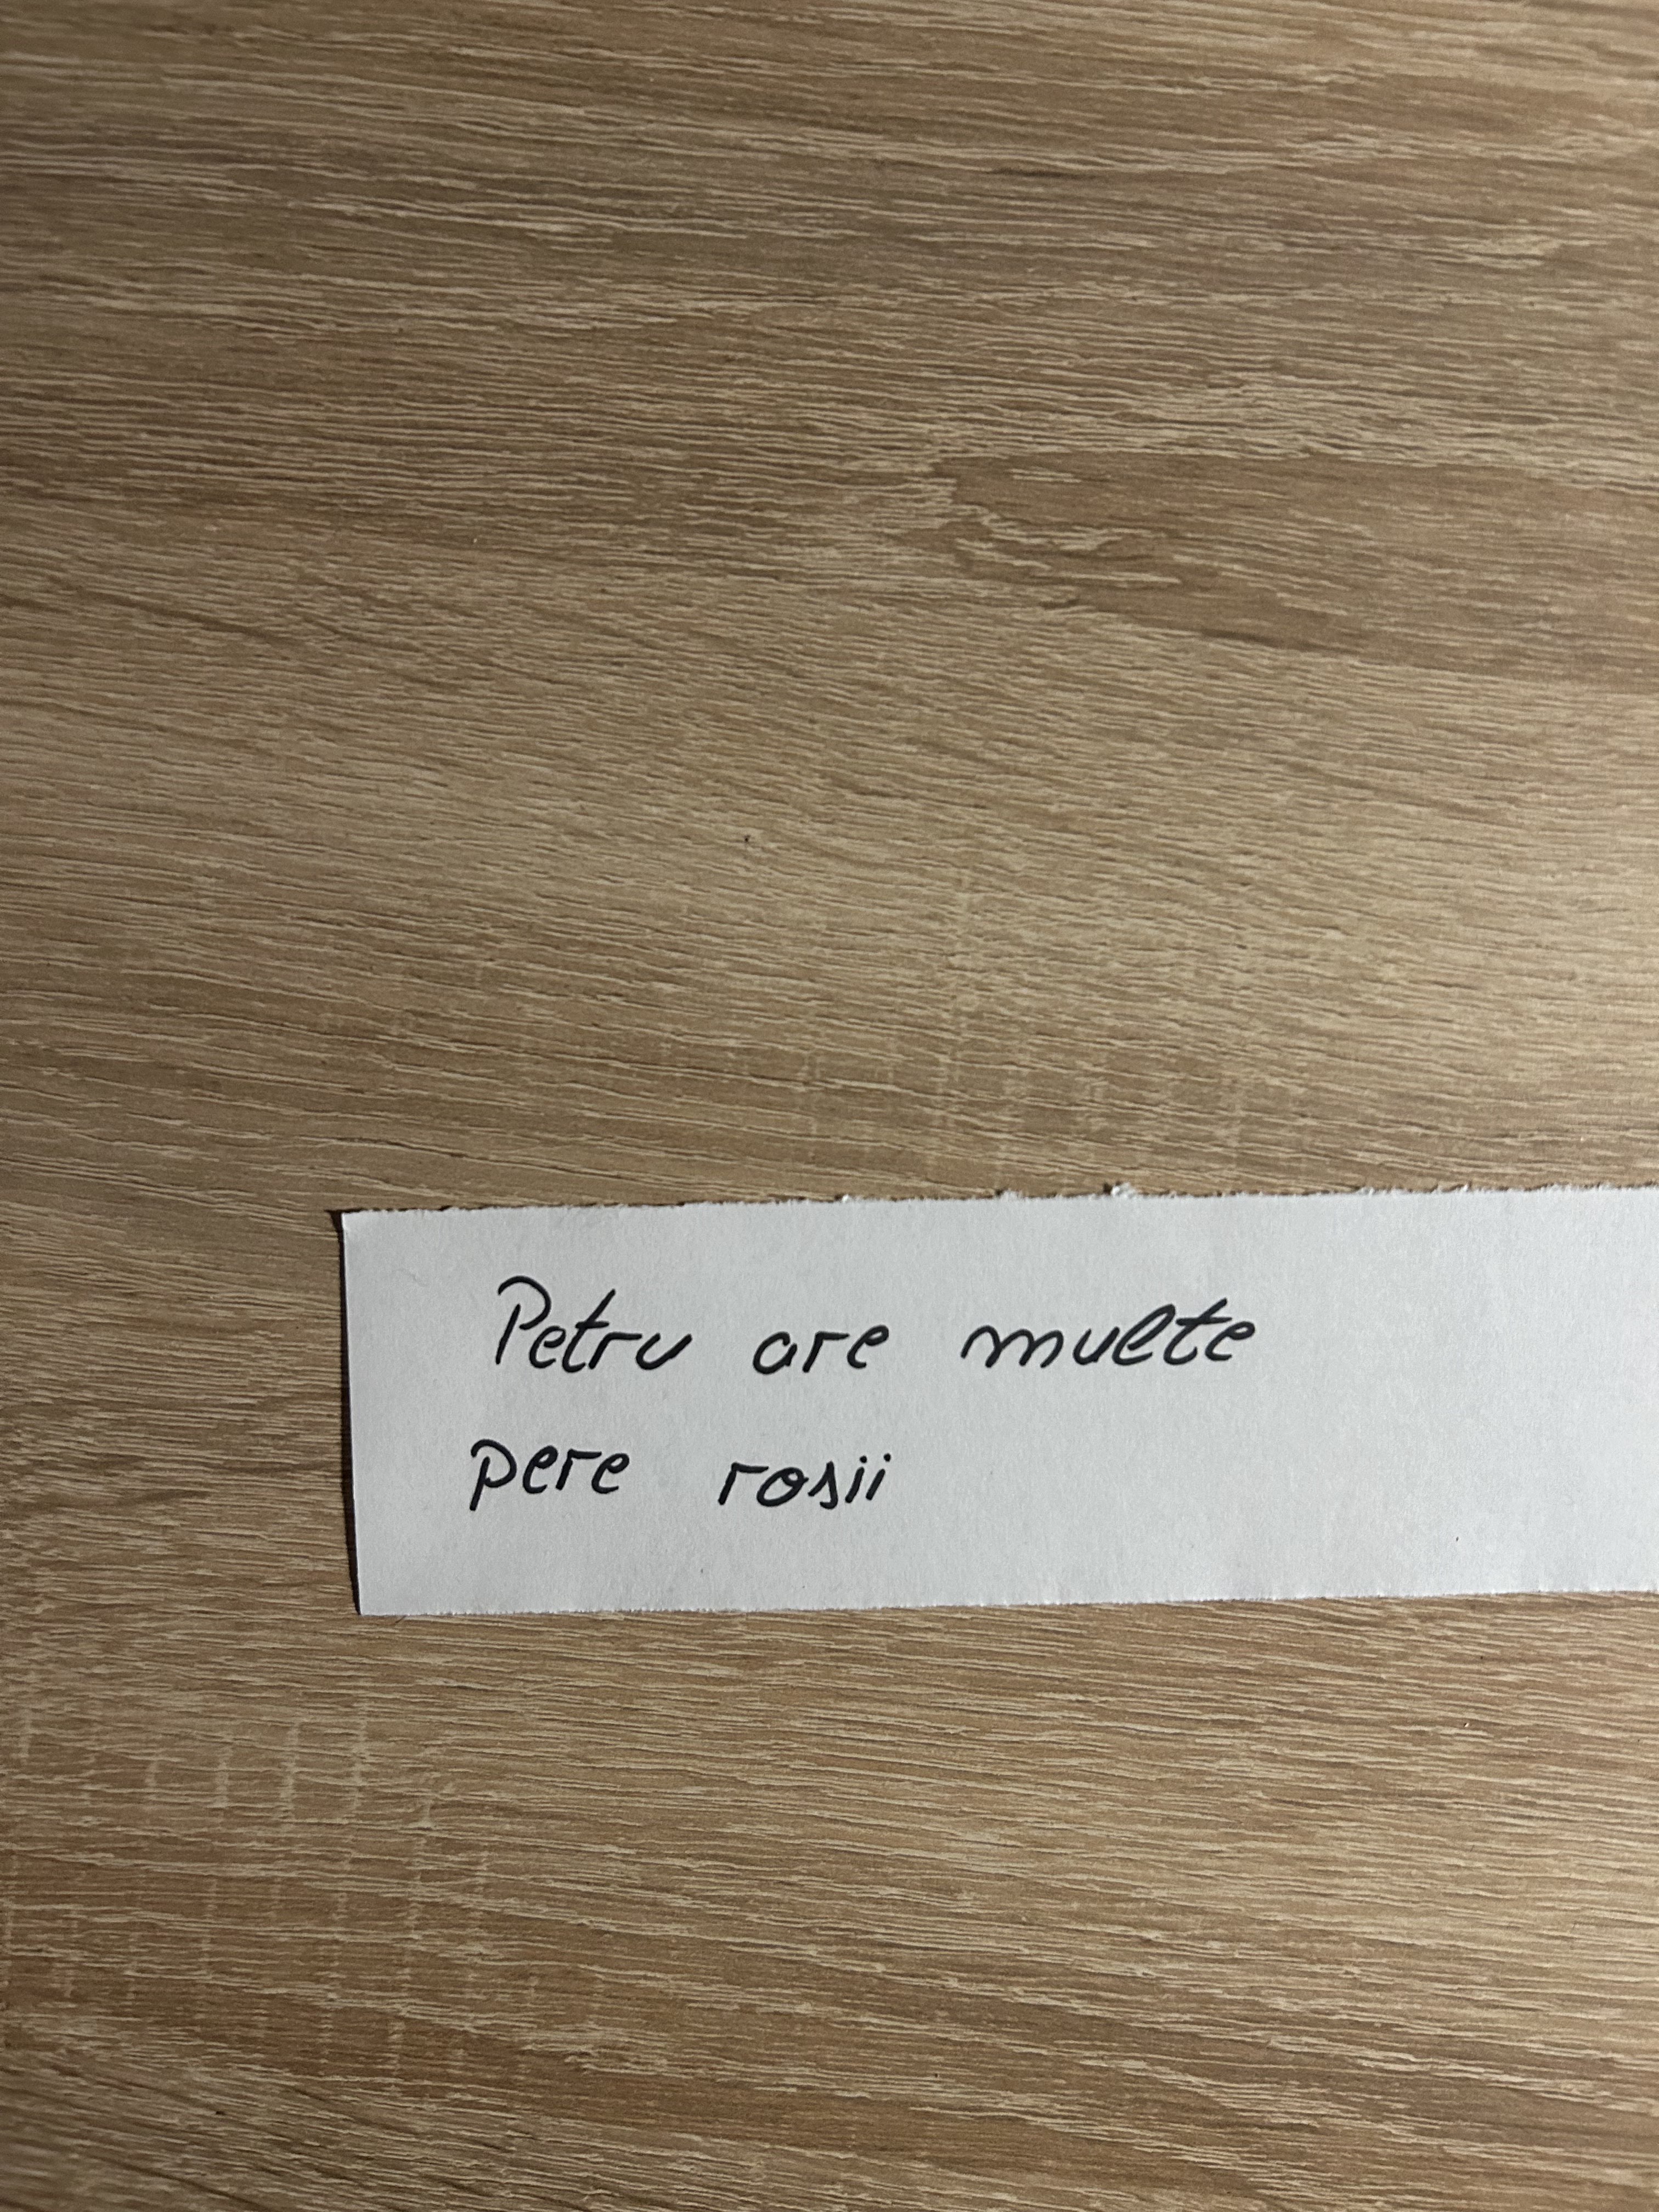 Petru are multe
pere rosii